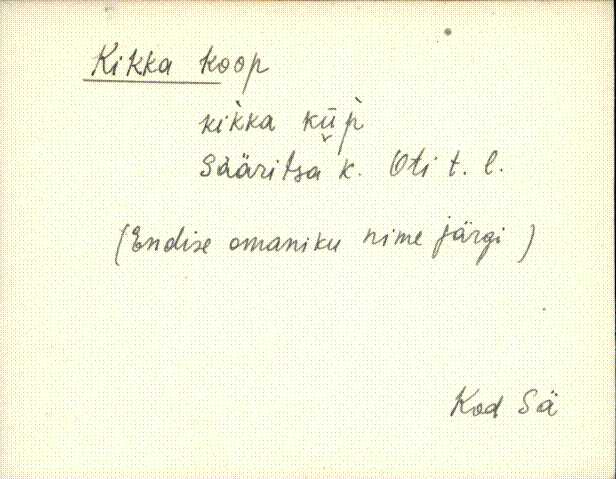 Kikka koop
kìkka kūp̀
Sääritsa k. Oti t. l.
(Endise omaniku nime järgi)
Kod Sä